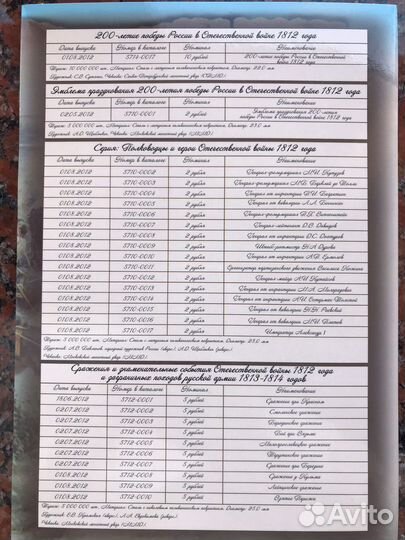 200-летие победы России в Отечественной войне 1812 года
Дата выпуска Номер в каталоге Номинал Наименование
01.08.2012 5714-0017 10 рублей 200-летие победы России в Отечественной войне 1812 года
Тираж: 10 000 000 шт. Материал: Сталь с латунным гальваническим покрытием. Диаметр: 22.0 мм
Эмблема празднования 200-летия победы России в Отечественной войне 1812 года
Дата выпуска Номер в каталоге Номинал Наименование
02.05.2012 5710-0001 2 рубля Эмблема празднования 200-летия победы России в Отечественной войне 1812 года
Серия: Полководцы и герои Отечественной войны 1812 года
Дата выпуска Номер в каталоге Номинал Наименование
01.08.2012 5710-0002 2 рубля Генерал-фельдмаршал М.И. Кутузов
01.08.2012 5710-0003 2 рубля Генерал-фельдмаршал М.Б. Барклай де Толли
01.08.2012 5710-0004 2 рубля Генерал от инфантерии П.И. Багратион
01.08.2012 5710-0005 2 рубля Генерал от кавалерии Л.Л. Беннигсен
01.08.2012 5710-0006 2 рубля Генерал-фельдмаршал П.Х. Витгенштейн
01.08.2012 5710-0007 2 рубля Генерал-лейтенант Д.В. Давыдов
01.08.2012 5710-0008 2 рубля Генерал от инфантерии Д.С. Дохтуров
01.08.2012 5710-0009 2 рубля Штабс-ротмистр Н.А. Дурова
01.08.2012 5710-0010 2 рубля Генерал от инфантерии А.П. Ермолов
01.08.2012 5710-0011 2 рубля Организатор партизанского движения Василиса Кожина
01.08.2012 5710-0012 2 рубля Генерал-майор А.И. Кутайсов
01.08.2012 5710-0013 2 рубля Генерал от инфантерии М.А. Милорадович
01.08.2012 5710-0014 2 рубля Генерал от инфантерии А.И. Остерман-Толстой
01.08.2012 5710-0015 2 рубля Генерал от кавалерии Н.Н. Раевский
01.08.2012 5710-0016 2 рубля Генерал от кавалерии М.И. Платов
01.08.2012 5710-0017 2 рубля Император Александр I
Тираж: 5 000 000 шт. Материал: Сталь с никелевым гальваническим покрытием. Диаметр: 23.0 мм
Сражения и знаменательные события Отечественной войны 1812 года
и заграничных походов русской армии 1813-1814 годов
Дата выпуска Номер в каталоге Номинал Наименование
18.06.2012 5712-0001 5 рублей Сражение при Красном
02.07.2012 5712-0002 5 рублей Смоленское сражение
02.07.2012 5712-0003 5 рублей Бородинское сражение
02.07.2012 5712-0004 5 рублей Бой при Вязьме
02.07.2012 5712-0005 5 рублей Малоярославецкое сражение
02.07.2012 5712-0006 5 рублей Тарутинское сражение
02.07.2012 5712-0007 5 рублей Сражение при Березине
01.08.2012 5712-0008 5 рублей Сражение у Кульма
01.08.2012 5712-0009 5 рублей Лейпцигское сражение
01.08.2012 5712-0010 5 рублей Взятие Парижа
Тираж: 5 000 000 шт. Материал: Сталь с никелевым гальваническим покрытием. Диаметр: 25.0 мм
Avito